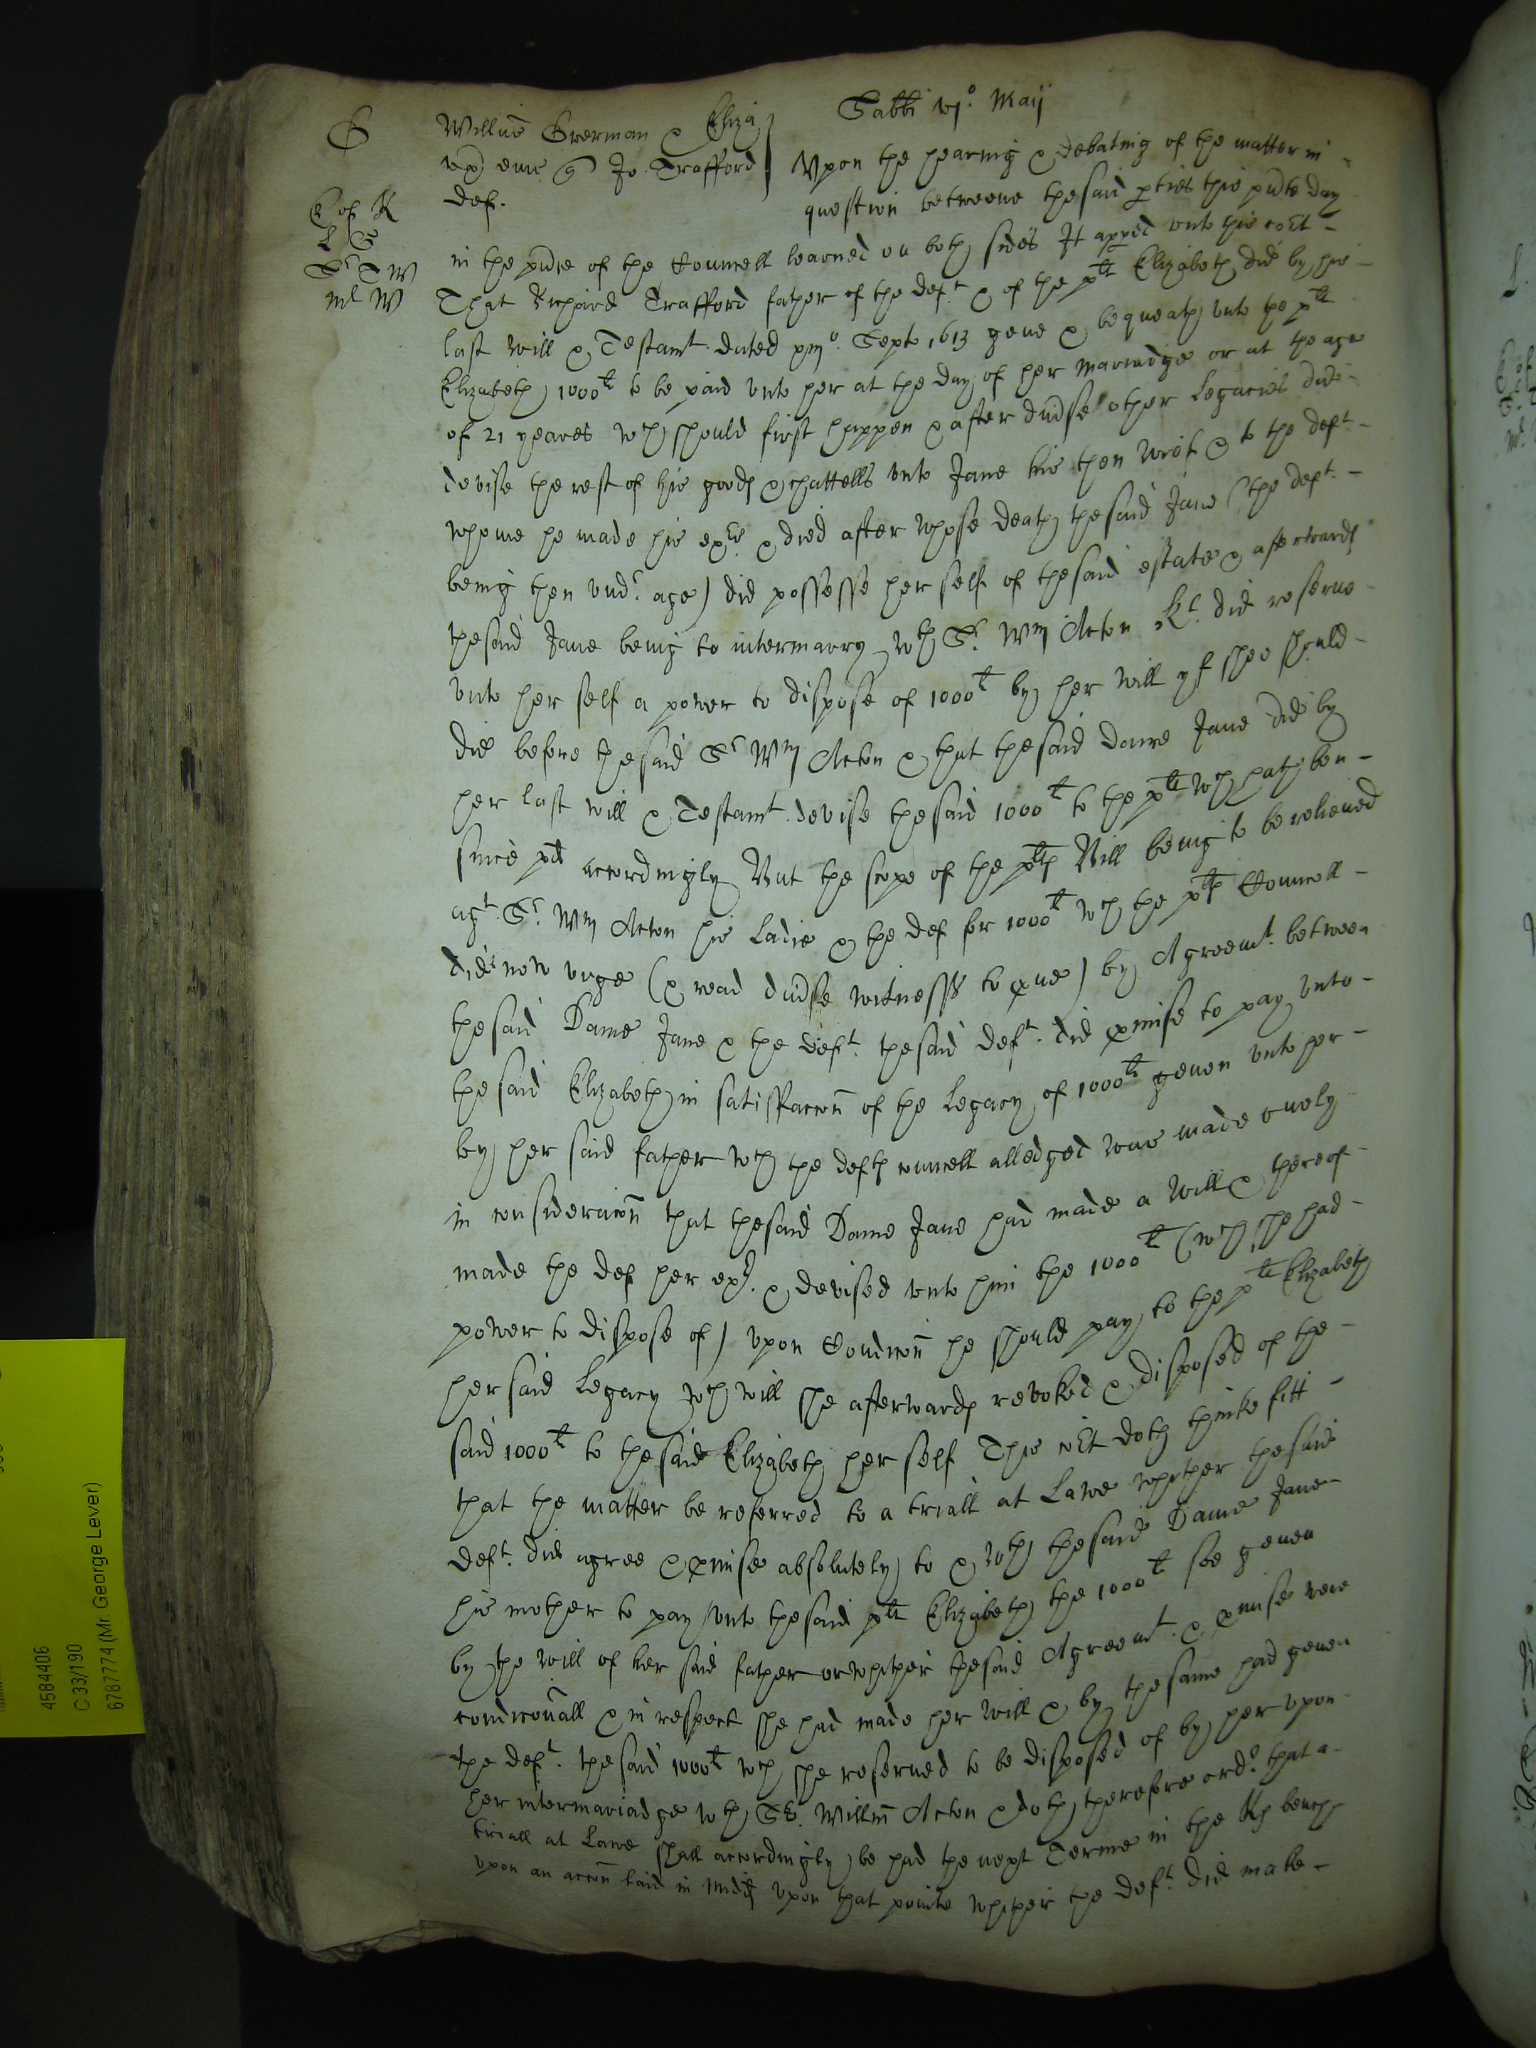 Sabbti vjo. Maij
G
Willus Greeman & Eliza
ux eius Jo: Trafford
def.
Vpon the hearing & debating of the matter in
question betweene the said pties this pnte day
E of K
L G
Sr T W
Mr W
in the pnce of the Councell learned on both sides It apped vnto this cort
That Richard Trafford father of the deft & of the plt Elizabeth did by his
last will & Testamt. dated Septo 1613 geue & bequeath vnto the plt
Elizabeth 1000li to be paid vnto her at the day of her mariadge or at the age
of 21 yeares wch should first happen & after diuse other Legacies did
devise the rest of his goods & chattells vnto Jane his then wief & to the deft
whome he made his exrs. & died after whose death the said Jane (the deft.
being then vndr. age) did possesse her self of the said estate & afterwards
the said Jane being to intermarry wth Sr. Wm Acton Kt. did reserue
vnto her self a power to dispose of 1000li by her will yf shee should
die before the said Sr Wm Acton & that the said Dame Jane did by
her last will & Testamt. devise the said 1000li to the plt wch hath ben
since pd accordingly But the scope of the plts Bill being to be relieued
agt. Sr. Wm Acton his Ladie & the def for 1000li wch the plts Councell
did now vrge (& read diuse witnesses to proue) by Agreemt. between
the said Dame Jane & the deft. the said deft. did promise to pay vnto
the said Elizabeth in satisfaccon of the Legacy of 1000li geuen vnto her
by her said father wch the defts councell alledged was made onely
in consideracon that the said Dame Jane had made a will & thereof
made the def her exr. & devised vnto him the 1000li (wch she had
power to dispose of) vpon Condicon he should pay to the plt Elizabeth
her said Legacy wch will she afterwards revoked & disposed of the
said 1000li to the said Elizabeth her self This cort doth thinke fitt
that the matter be referred to a triall at Lawe whither the said
deft. did agree & pmise absolutely to & wth the said Dame Jane
his mother to pay vnto the said plt Elizabeth the 1000li soe geuen
by the will of her said father or whither the said Agreemt. & pmise were
condiconall & in respect she had made her will & by the same had geuen
the deft. the said 1000li wch she reserued to be disposed of by her vpon
her intermariadge wth Sr. Willm Acton & doth therefore ordr. that a
triall at Lawe shall accordingly be had the next Terme in the Ks bench
vpon an accon laid in Midds vpon that pointe whither the deft. did make
4584406
C 33/190
6787774 (Mr. George Lever)